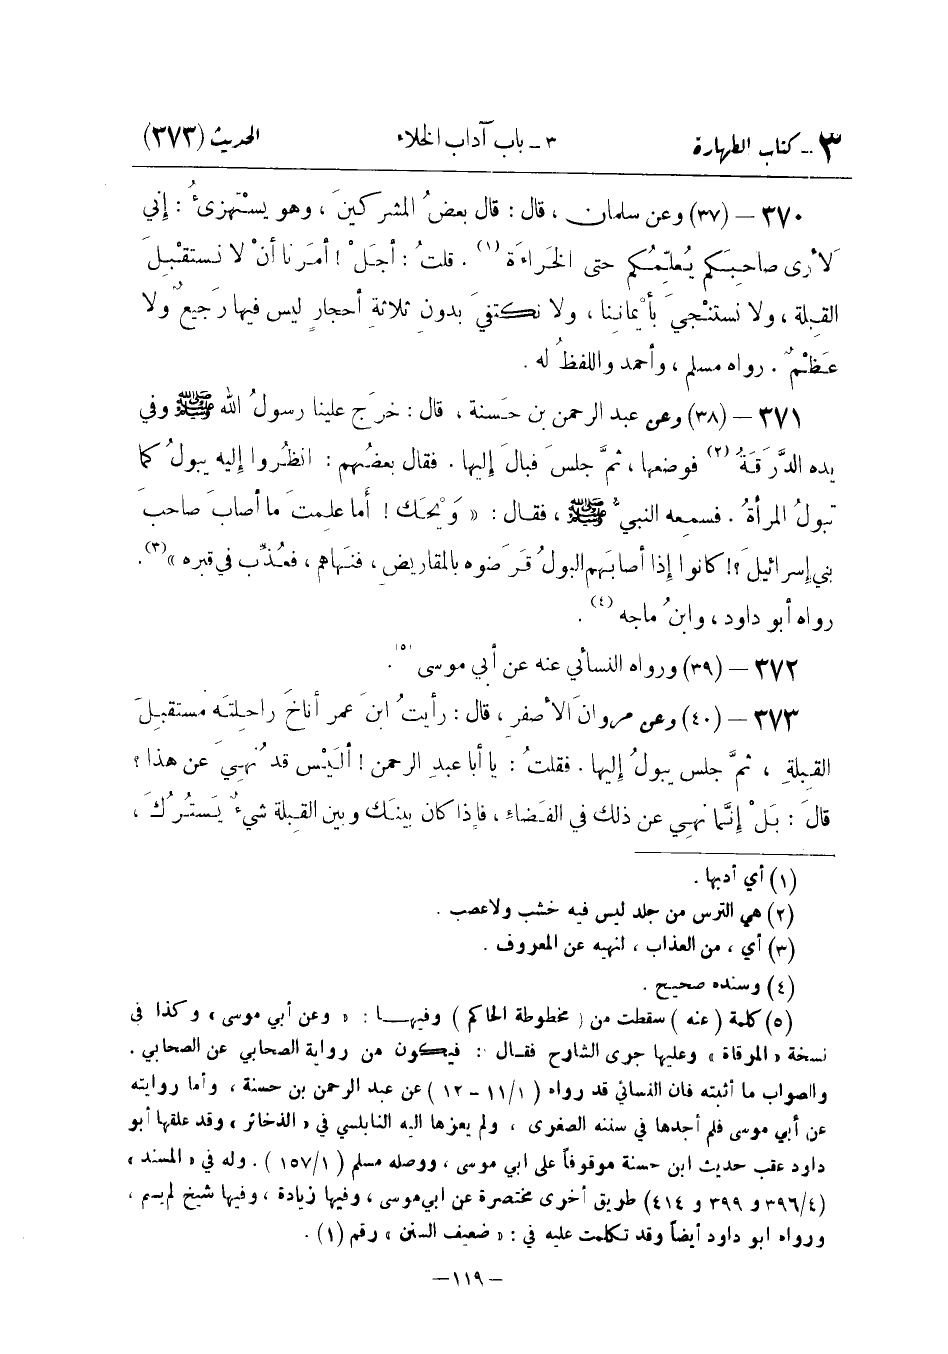 ٣ - كتاب الطهارة ٣ - باب آداب الخلاء الحديث (٣٧٣)
٣٧٠ – (٣٧) وعن سلمان ، قال : قال بعضُ المشركينَ ، وهو يستْهزىءُ : إني
لأرى صاحبَكم يُعلّمُكم حتى الخَراءَة (١) . قلتُ : أجلْ ! أمرَنا أنْ لا نستقبْلَ
القبلة ، ولا نستنْجيَ بأيْماننا ، ولا نكتفيَ بدونِ ثلاثةِ أحجارٍ ليس فيها رَجيعٌ ولا
عَظْمٌ . رواه مسلم ، وأحمد واللفظُ له .
٣٧١ – (٣٨) وعن عبد الرحمن بن حَسنة ، قال : خرَج علينا رسولُ الله ﷺ وفي
يده الدَّرَقةُ (٢) فوضعها ، ثمَّ جلسَ فبالَ إليها . فقال بعضُهم : انظُروا إليه يبولُ كما
تبولُ المرأةُ . فسمعه النبيُّ ﷺ ، فقال : « وَيْحَك ! أما علِمتَ ما أصابَ صاحبَ
بني إسرائيلَ ؟! كانوا إذا أصابَهم البولُ قرَضوه بالمقاريض ، فنَهاهم ، فعُذّب في قبره »(٣).
رواه أبو داود ، وابنُ ماجه (٤) .
٣٧٢ – (٣٩) ورواه النسائي عنه عن أبي موسى (٥) .
٣٧٣ – (٤٠) وعن مروانَ الأصفر ، قال : رأيتُ ابنَ عمر أناخَ راحلتَه مستقبلَ
القبلةِ ، ثمَّ جلس يبولُ إليها . فقلتُ : يا أبا عبدِ الرحمن ! أليْس قد نُهيَ عن هذا ؟
قالَ : بَلْ إنَّما نهي عن ذلك في الفَضاء ، فإذا كان بينَك وبين القبلة شيءٌ يَستُرُكَ ،
(١) أي أدبها .
(٢) هي الترس من جلد ليس فيه خشب ولا عصب .
(٣) أي ، من العذاب ، لنهيه عن المعروف .
(٤) وسنده صحيح .
(٥) كلمة ( عنه ) سقطت من ( مخطوطة الحاكم ) وفيها : « وعن أبي موسى » وكذا في
نسخة « المرقاة » وعليها جرى الشارح فقال : فيكون من رواية الصحابي عن الصحابي .
والصواب ما أثبته فان النسائي قد رواه ( ١/١١ - ١٢ ) عن عبد الرحمن بن حسنة ، وأما روايته
عن أبي موسى فلم أجدها في سننه الصغرى ، ولم يعزها اليه النابلسي في « الذخائر » وقد علقها أبو
داود عقب حديث ابن حسنة موقوفاً على ابي موسى ، ووصله مسلم ( ١/١٥٧ ) . وله في « المسند »
(٤/٣٩٦ و ٣٩٩ و ٤١٤) طريق أخرى مختصرة عن ابي موسى ، وفيها زيادة ، وفيها شيخ لم يسم ،
ورواه ابو داود أيضاً وقد تكلمت عليه في : « ضعيف السنن » رقم (١) .
– ١١٩ –